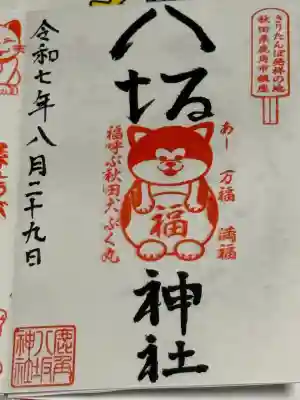 きりたんぽ発祥の地
秋田県鹿角市鎮座
八坂
神社
あー 万福 満福
福
福呼ぶ秋田犬ぶく丸
令和七年八月二十九日
鹿角
八坂
神社